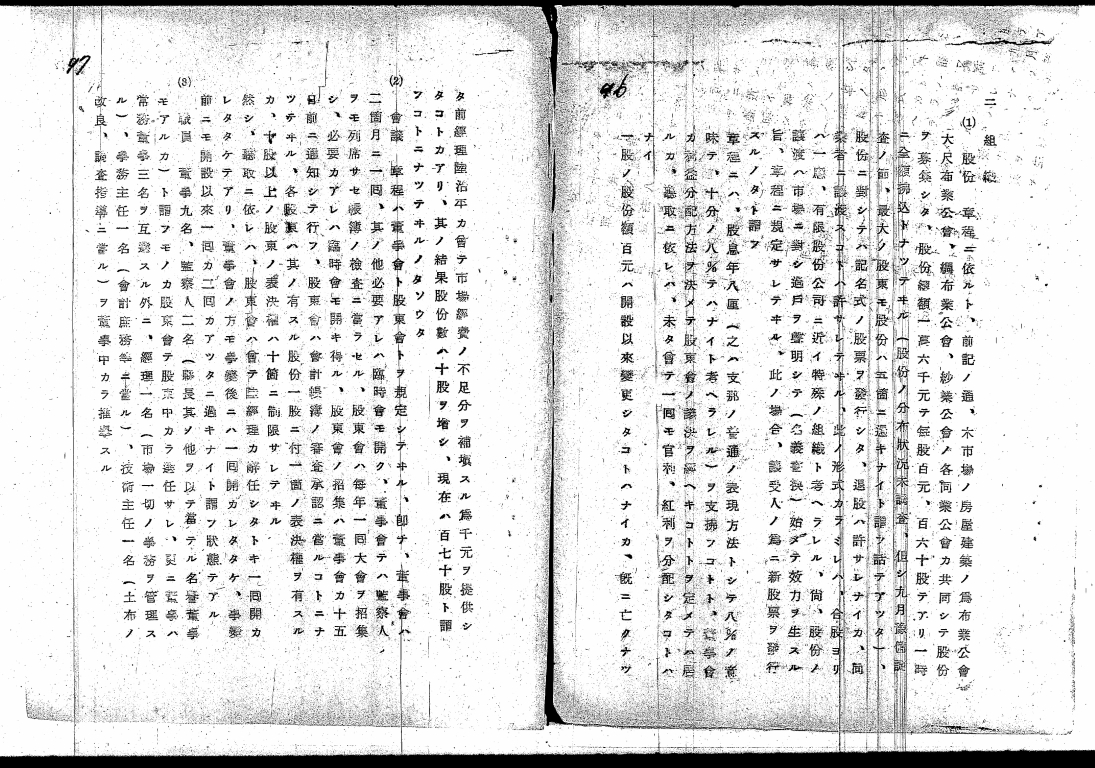 96
二 組織
(1) 股份 章程ニ依ルト、前記ノ通、木市場ノ房屋建築ノ爲布業公會
大尺布業公會、綢布業公會、紗業公會ノ各同業公會カ共同シテ股份
ヲ募集シタ、股份總額一萬六千元テ每股百元、百六十股テアリ一時
ニ全額拂込トナツテヰル（股份ノ分布狀況未調査、但シ九月
査ノ節、最大ノ股東モ股份ハ五箇ニ過キナイト謂フ話テアツタ）、
股份ニ對シテハ記名式ノ股票ヲ發行シタ、退股ハ許サレナイカ、同
業者ニ讓渡スコトハ許サレテヰル、此ノ形式カラミレハ、合股ヨリ
ハ一應、有限股份公司ニ近イ特殊ノ組織ト考ヘラレル、尙、股份ノ
讓渡ハ市場ニ對シ過戶ヲ聲明シテ（名義書換）始メテ效力ヲ生スル
旨、章程ニ規定サレテヰル、此ノ場合、讓受人ノ爲ニ新股票ヲ發行
スルノタト謂フ
章程ニハ、股息年八厘（之ハ支那ノ普通ノ表現方法トシテ八％ノ意
味テ、十分ノ八％テハナイト考ヘラレル）ヲ支拂フコトト、董事會
カ利益分配方法ヲ決メテ股東會ノ議決ヲ經ヘキコトトヲ定メテハ居
ルカ、聽取ニ依レハ、未タ曾テ一回モ官利、紅利ヲ分配シタコトハ
ナイ
一股ノ股份額百元ハ開設以來變更シタコトハナイカ、既ニ亡クナツ
97
タ前經理陸治平カ曾テ市場經費ノ不足分ヲ補塡スル爲千元ヲ提供シ
タコトカアリ、其ノ結果股份數ハ十股ヲ增シ、現在ハ百七十股ト謂
フコトニナツテヰルノタソウタ
(2) 會議 章程ハ董事會ト股東會トヲ規定シテヰル、卽チ、董事會ハ
二箇月ニ一回、其ノ他必要アレハ臨時會モ開ク、董事會テハ監察人
ヲモ列席サセ帳簿ノ檢査ニ當ラセル、股東會ハ每年一回大會ヲ招集
シ、必要カアレハ臨時會モ開キ得ル、股東會ノ招集ハ董事會カ十五
日前ニ通知シテ行フ、股東會ハ會計帳簿ノ審査承認ニ當ルコトニナ
ツテヰル、各股東ハ其ノ有スル股份一股ニ付一箇ノ表決權ヲ有スル
カ、十股以上ノ股東ノ表決權ハ十箇ニ制限サレテヰル
然シ、聽取ニ依レハ、股東會ハ曾テ陸經理カ辭任シタトキ一回開カ
レタタケテアリ、董事會ノ方モ事變後ニハ一回開カレタタケ、事變
前ニモ開設以來一回カ二回カアツタニ過キナイト謂フ狀態テアル
(3) 職員 董事九名、監察人二名（縣長其ノ他ヲ以テ當テル名譽董事
モアルカ）ト謂フモノカ股東會テ股東中カラ選任サレ、更ニ董事ハ
常務董事三名ヲ互選スル外ニ、經理一名（市場一切ノ事務ヲ管理ス
ル）、事務主任一名（會計庶務等ニ當ル）、技術主任一名（土布ノ
改良、調査指導ニ當ル）ヲ董事中カラ推擧スル